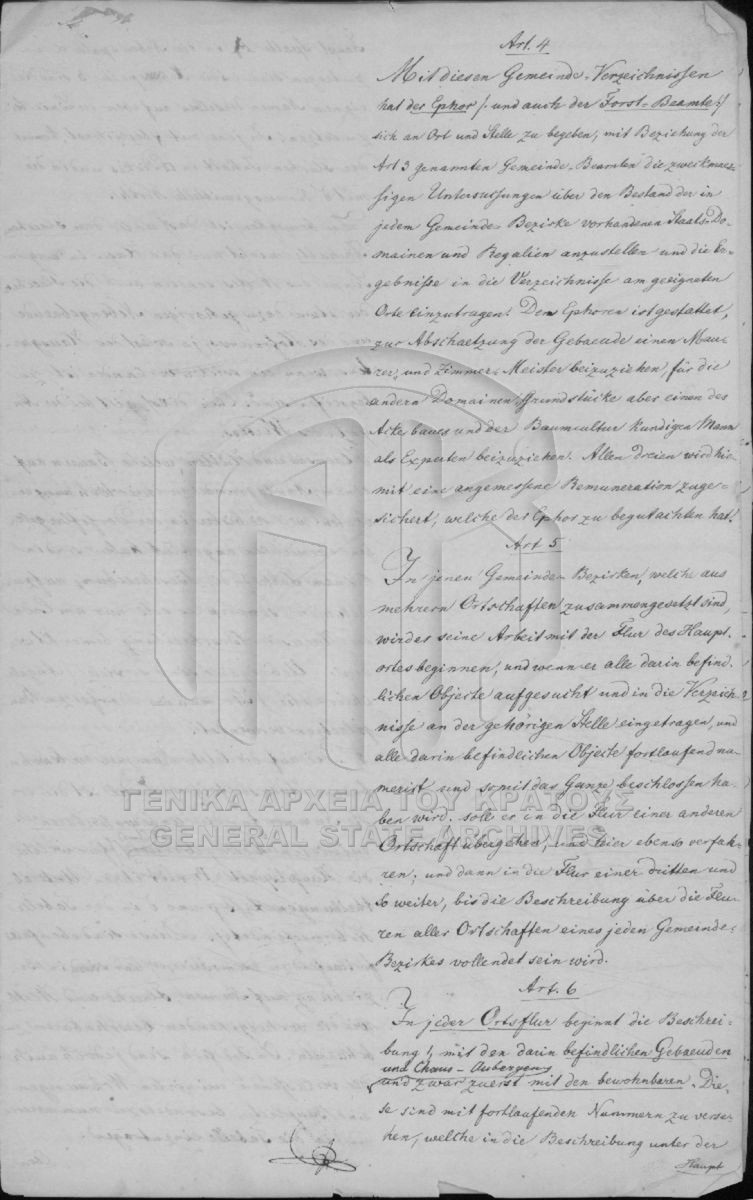 Art. 4
Mit diesen Gemeinde-Verzeichnissen
hat der Ephor /: und auch der Forst-Beamte :/
sich an Ort und Stelle zu begeben, mit Beziehung der
Art 3 genannten Gemeinde-Beamten die zweckmaes-
sigen Untersuchungen über den Bestand der in
jedem Gemeinde-Bezirke vorhandenen Staats-Do-
mainen und Regalien anzustellen und die Er-
gebnisse in die Verzeichnisse am geeigneten
Orte einzutragen. Dem Ephoren ist gestattet,
zur Abschaetzung der Gebaeude einen Mau-
rer- und Zimmer-Meister beizuziehen, für die
andern Domainen Grundstücke aber einen des
Ackerbaues und der Baumcultur kundigen Mann
als Experten beizuziehen. Allen dreien wird hie-
mit eine angemessene Remuneration zuge-
sichert, welche der Ephor zu begutachten hat.
Art 5
In jenen Gemeinde-Bezirken, welche aus
mehrern Ortschaften zusammengesetzt sind,
wird er seine Arbeit mit der Flur des Haupt-
ortes beginnen, und wenn er alle darin befind-
lichen Objecte aufgesucht und in die Verzeich-
nisse an der gehörigen Stelle eingetragen, und
alle darin befindlichen Objecte fortlaufend nu-
merirt und somit das Ganze beschlossen ha-
ben wird, soll er in die Flur einer anderen
Ortschaft übergehen, und hier ebenso verfah-
ren; und dann in die Flur einer dritten und
so weiter, bis die Beschreibung über die Flu-
ren aller Ortschaften eines jeden Gemeinde-
Bezirkes vollendet sein wird.
ΓΕΝΙΚΑ ΑΡΧΕΙΑ ΤΟΥ ΚΡΑΤΟΥΣ
GENERAL STATE ARCHIVES
Art. 6
In jeder Ortsflur beginnt die Beschrei-
bung, mit den darin befindlichen Gebaeuden
und Chans-Aubergen
und zwar zuerst mit den bewohnbaren. Die-
se sind mit fortlaufenden Nummern zu verse-
hen, welche in die Beschreibung unter der
Haupt